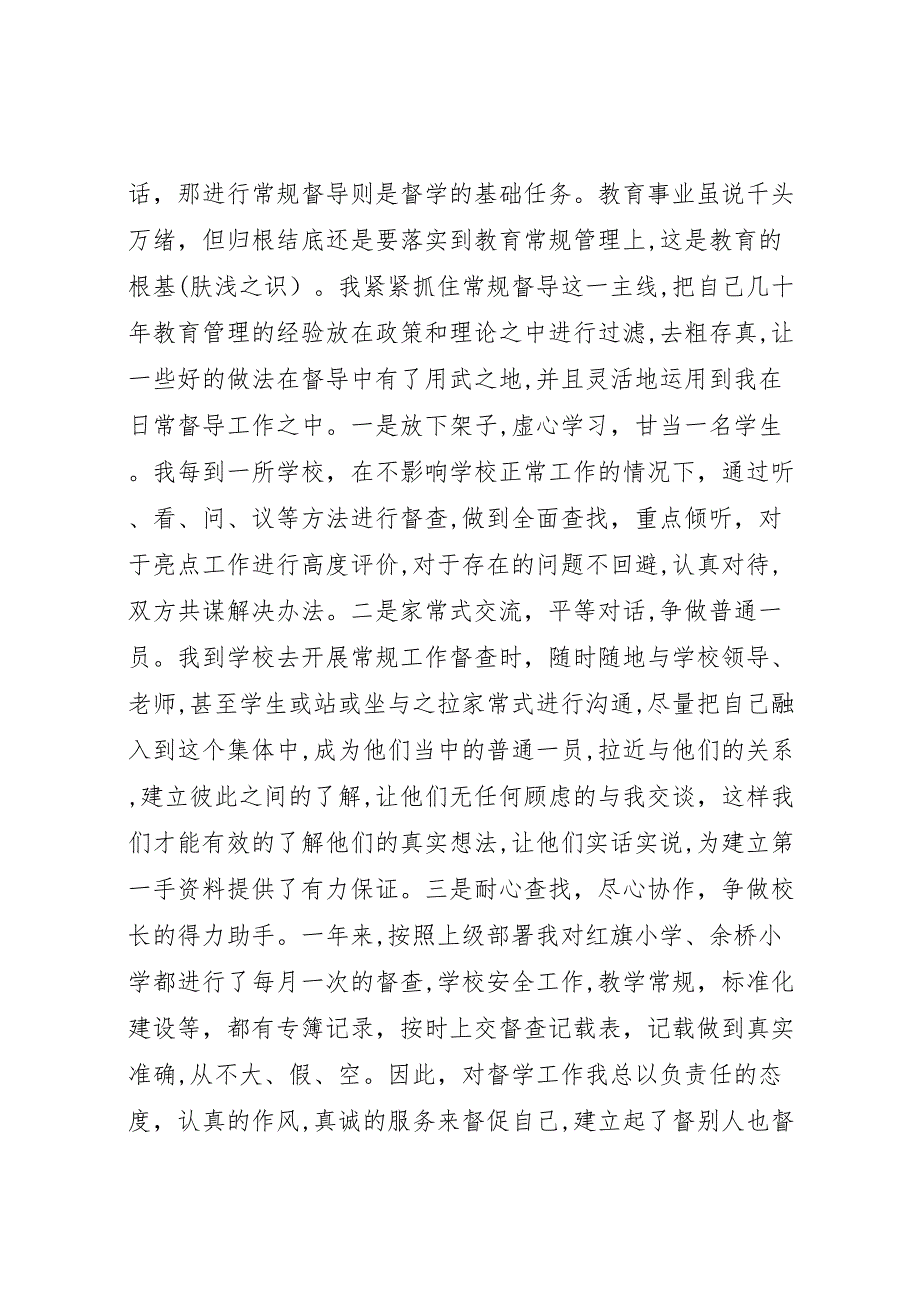 话，那进行常规督导则是督学的基础任务。教育事业虽说千头
万绪，但归根结底还是要落实到教育常规管理上,这是教育的
根基(肤浅之识）。我紧紧抓住常规督导这一主线,把自己几十
年教育管理的经验放在政策和理论之中进行过滤,去粗存真,让
一些好的做法在督导中有了用武之地,并且灵活地运用到我在
日常督导工作之中。一是放下架子,虚心学习，甘当一名学生
。我每到一所学校，在不影响学校正常工作的情况下，通过听
、看、问、议等方法进行督查,做到全面查找，重点倾听，对
于亮点工作进行高度评价,对于存在的问题不回避,认真对待,
双方共谋解决办法。二是家常式交流，平等对话,争做普通一
员。我到学校去开展常规工作督查时，随时随地与学校领导、
老师,甚至学生或站或坐与之拉家常式进行沟通,尽量把自己融
入到这个集体中,成为他们当中的普通一员,拉近与他们的关系
,建立彼此之间的了解,让他们无任何顾虑的与我交谈，这样我
们才能有效的了解他们的真实想法,让他们实话实说,为建立第
一手资料提供了有力保证。三是耐心查找，尽心协作，争做校
长的得力助手。一年来,按照上级部署我对红旗小学、余桥小
学都进行了每月一次的督查,学校安全工作,教学常规，标准化
建设等，都有专簿记录，按时上交督查记载表，记载做到真实
准确,从不大、假、空。因此，对督学工作我总以负责任的态
度，认真的作风,真诚的服务来督促自己,建立起了督别人也督